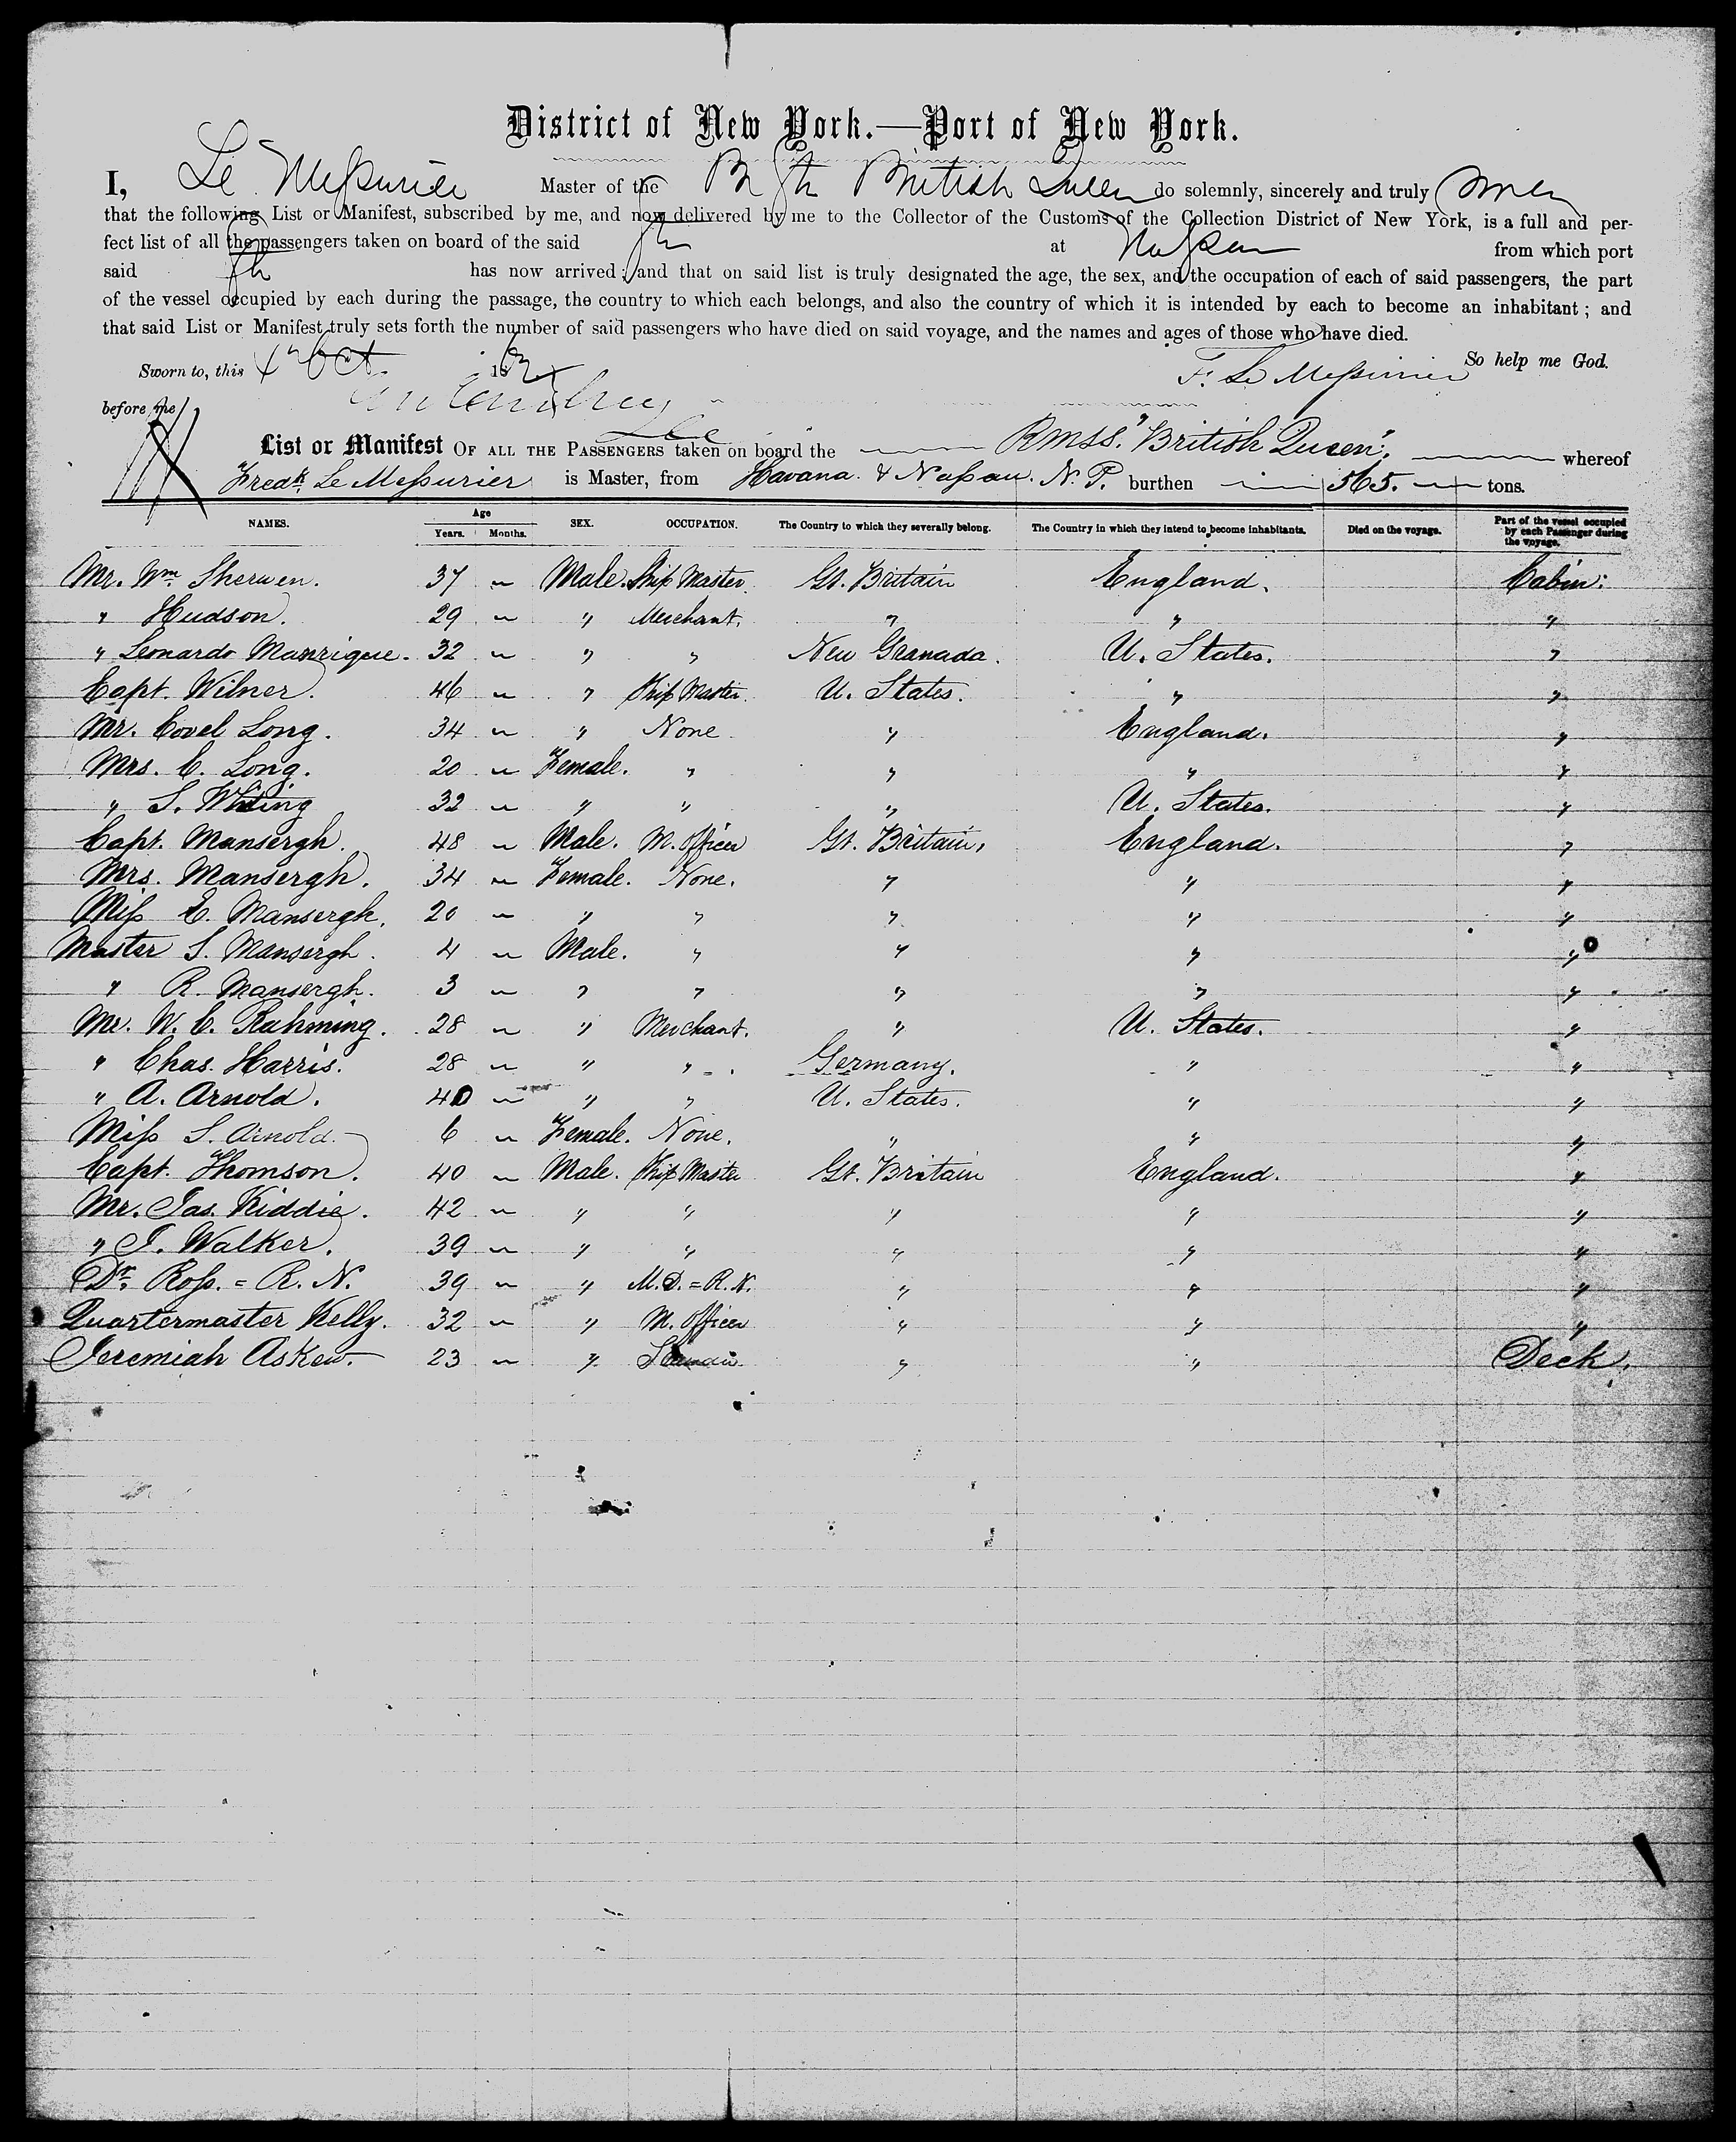 District of New York.—Port of New York.
I, Le Meſsurier Master of the Br British Queen do solemnly, sincerely and truly swear
that the following List or Manifest, subscribed by me, and now delivered by me to the Collector of the Customs of the Collection District of New York, is a full and per-
fect list of all the passengers taken on board of the said at Naſsau from which port
said has now arrived; and that on said list is truly designated the age, the sex, and the occupation of each of said passengers, the part
of the vessel occupied by each during the passage, the country to which each belongs, and also the country of which it is intended by each to become an inhabitant; and
that said List or Manifest truly sets forth the number of said passengers who have died on said voyage, and the names and ages of those who have died.
So help me God.
Sworn to, this Oct 18 F. Le Meſsurier
before me
List or Manifest OF ALL THE PASSENGERS taken on board the RMSS. "British Queen", whereof
Fredk. Le Meſsurier is Master, from Havana & Naſsau. N. P. burthen 565. tons.
NAMES. Age Years. Months. SEX. OCCUPATION. The Country to which they severally belong. The Country in which they intend to become inhabitants. Died on the voyage. Part of the vessel occupied by each Passenger during the voyage.
Mr. Wm. Sherwen. 37 " Male. Ship Master. Gt. Britain England. Cabin.
" Hudson. 29 " " Merchant. " " "
" Leonardo Manrique. 32 " " " New Granada. U. States. "
Capt. Wilner. 46 " " Ship Master. U. States. " "
Mr. Covel Long. 34 " " None " England. "
Mrs. C. Long. 20 " Female. " " " "
" S. Whiting 32 " " " " U. States. "
Capt. Mansergh. 48 " Male. M. Officer Gt. Britain, England. "
Mrs. Mansergh. 34 " Female. None. " " "
Miſs E. Mansergh. 20 " " " " " "
Master S. Mansergh. 4 " Male. " " " "
" R. Mansergh. 3 " " " " " "
Mr. W. C. Rahming. 28 " " Merchant. " U. States. "
" Chas. Harris. 28 " " " Germany. " "
" A. Arnold. 40 " " " U. States. " "
Miſs S. Arnold. 6 " Female. None. " " "
Capt. Thomson. 40 " Male. Ship Master Gt. Britain England. "
Mr. Jas. Kiddie. 42 " " " " " "
" J. Walker. 39 " " " " " "
Dr. Roſs. = R. N. 39 " " M.D. = R.N. " " "
Quartermaster Kelly. 32 " " M. Officer " " "
Jeremiah Askew. 23 " " " " Deck.